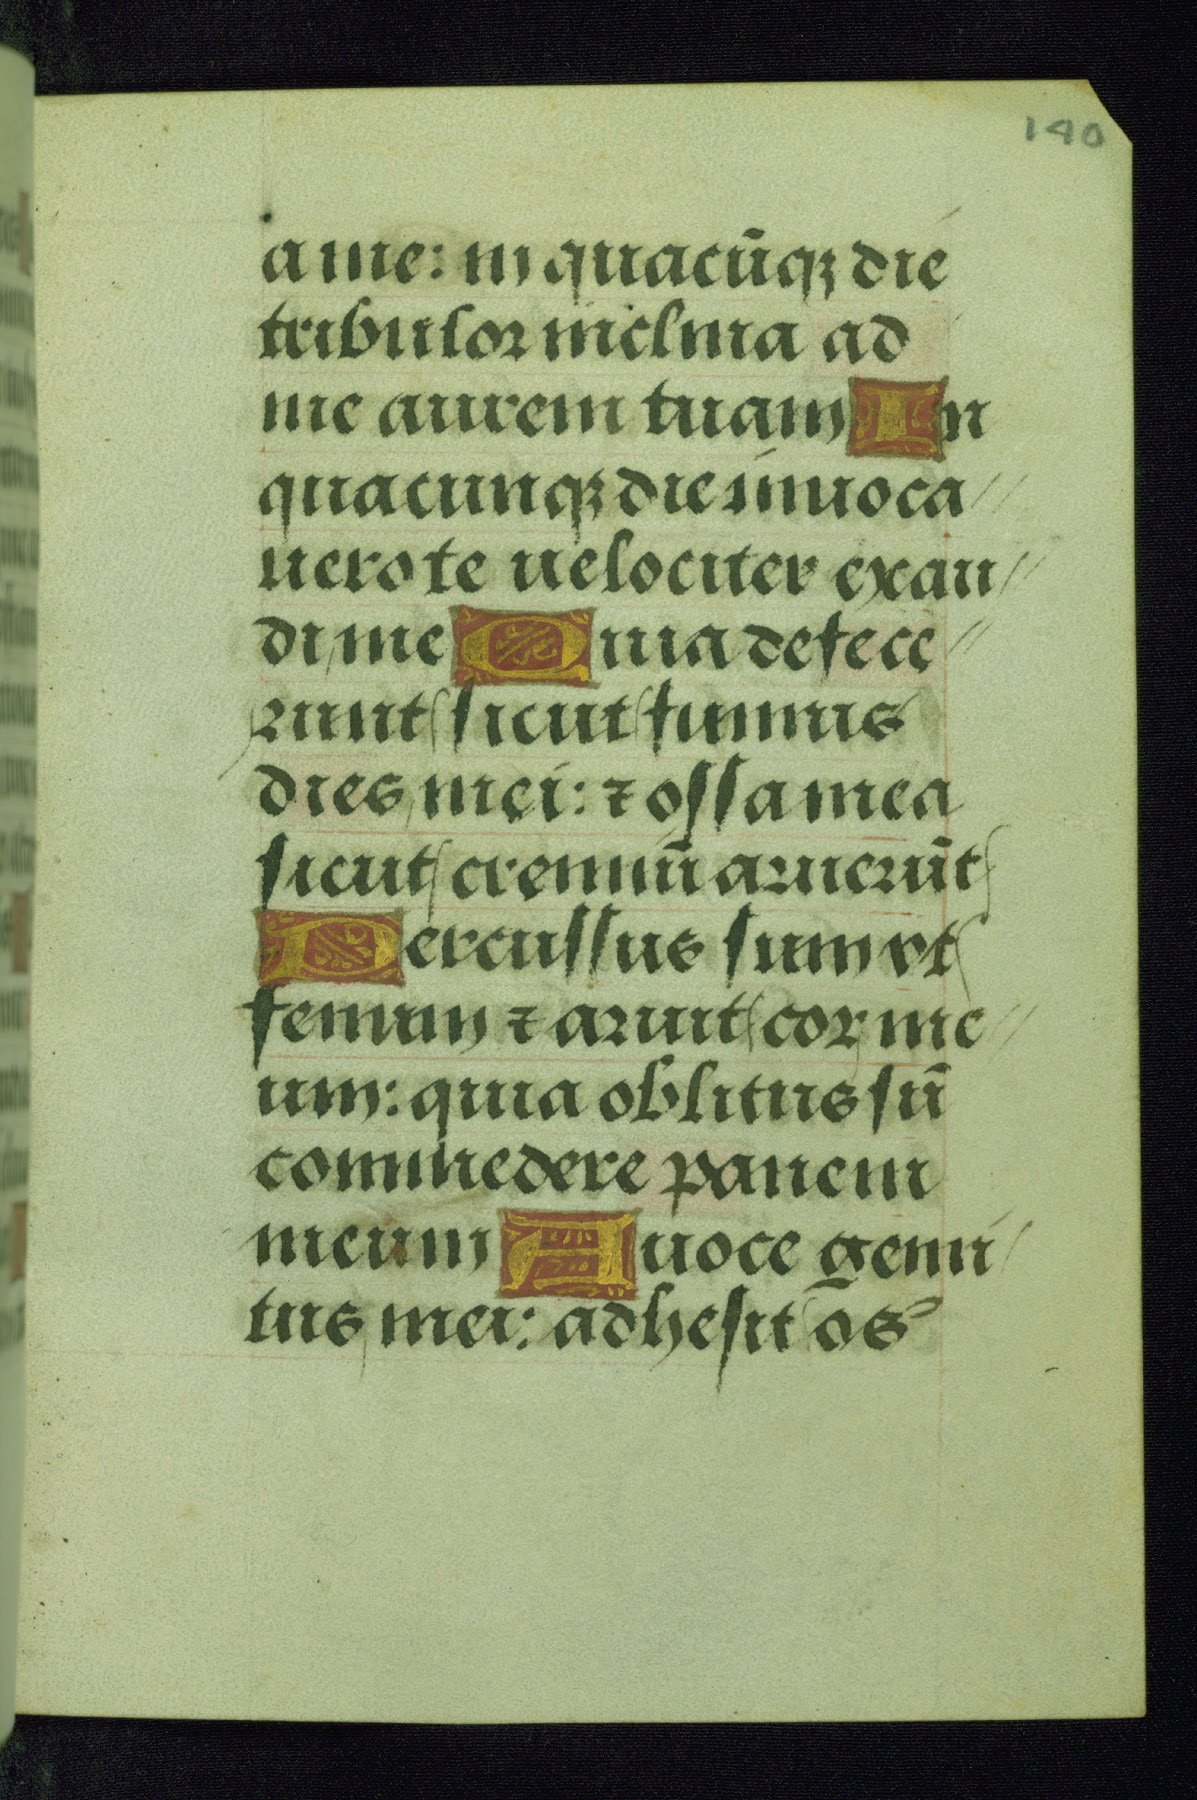 140
a me: in quacūqꝫ die
tribulor inclina ad
me aurem tuam In
quacunqꝫ die inuoca//
uero te uelociter exau//
di me Quia defece//
runt sicut fumus
dies mei: ⁊ ossa mea
sicut cremiū aruerūt
Percussus sum vt
fenum ⁊ aruit cor me//
um: quia oblitus sū
commedere panem
meum A uoce gemi/
tus mei: adhesit os